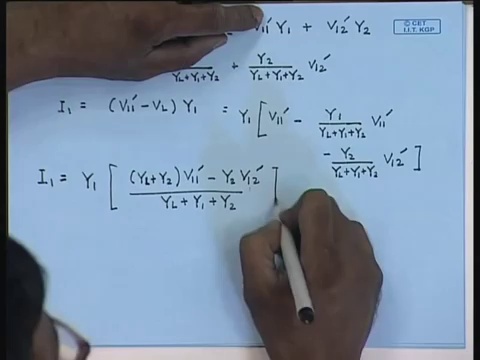 V₁₁′ Y₁ + V₁₂′ Y₂
© CET
I.I.T. KGP
Y_L+Y₁+Y₂ + Y₂/(Y_L+Y₁+Y₂) V₁₂′
I₁ = (V₁₁′ − V_L) Y₁ = Y₁ [ V₁₁′ − Y₁/(Y_L+Y₁+Y₂) V₁₁′
− Y₂/(Y_L+Y₁+Y₂) V₁₂′ ]
I₁ = Y₁ [ ((Y_L+Y₂) V₁₁′ − Y₂ V₁₂′)/(Y_L + Y₁ + Y₂) ]